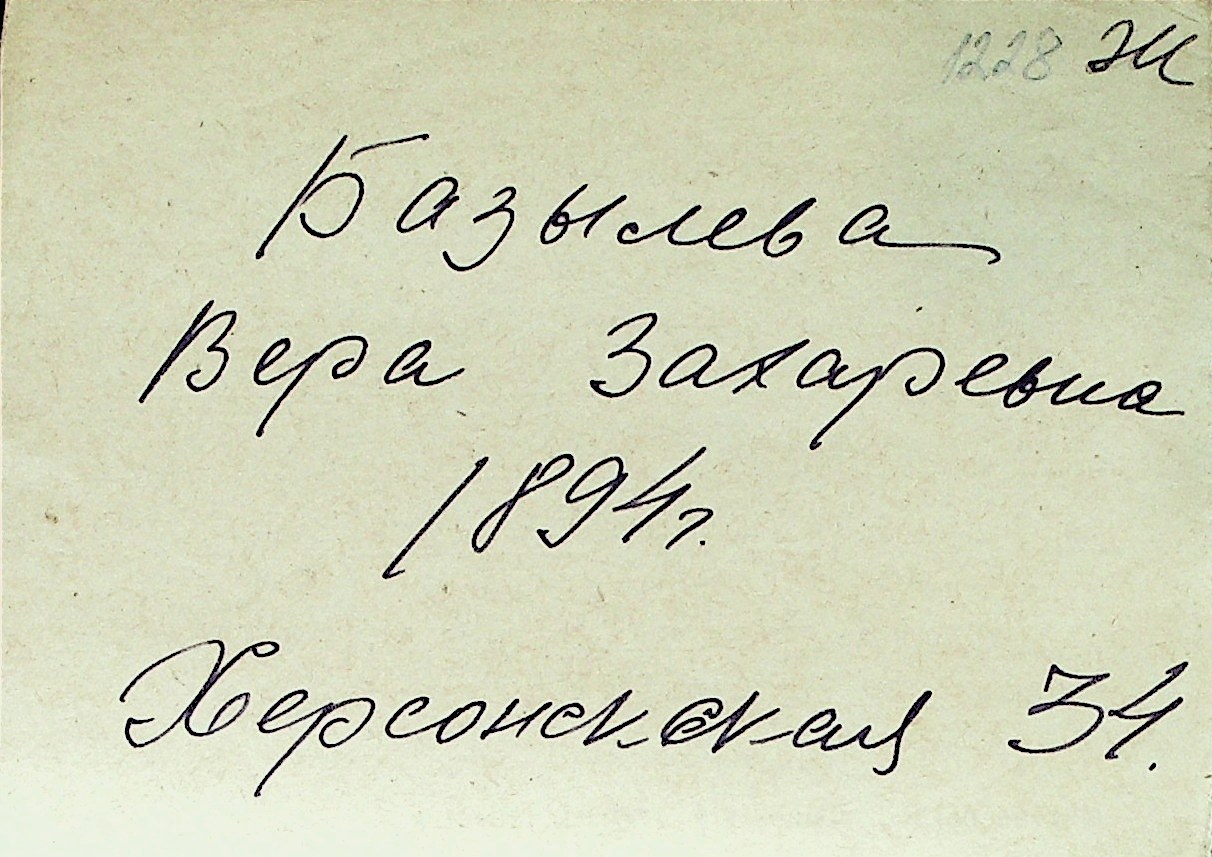 1228 Ж
Базылева
Вера Захаревна
1894г.
Херсонскская 34.